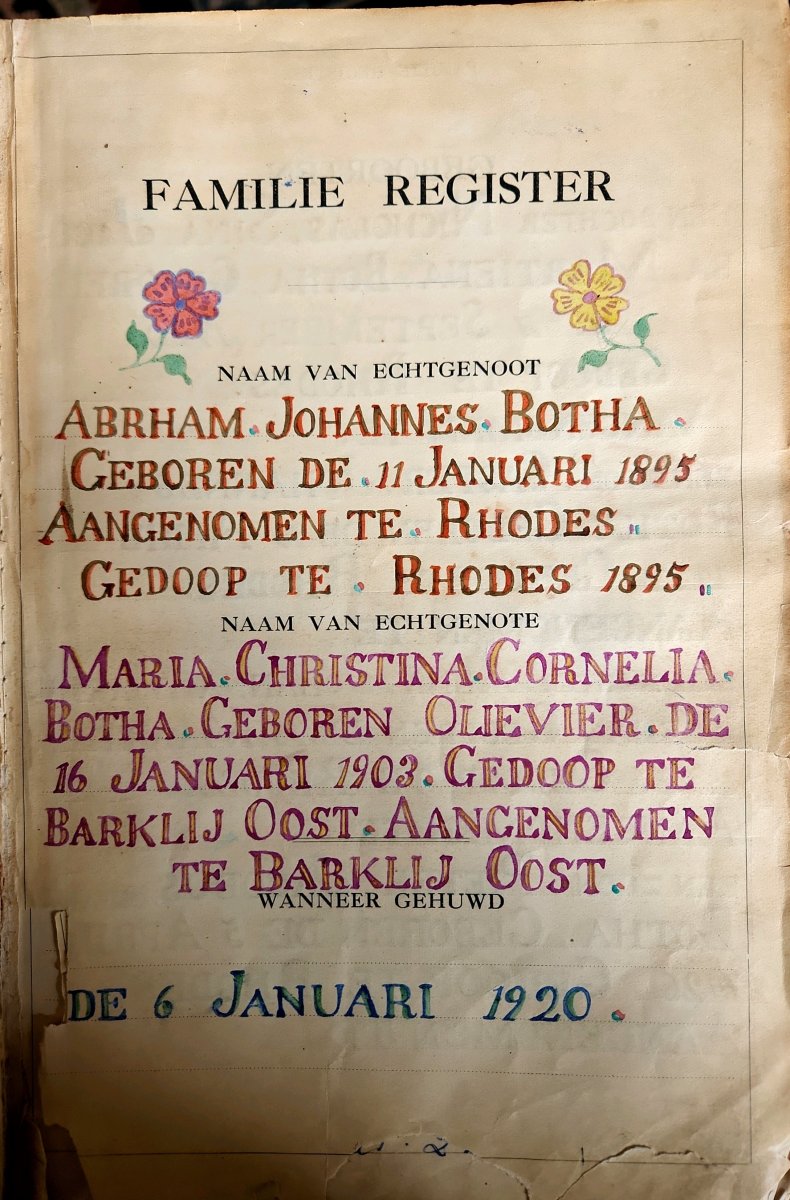 FAMILIE REGISTER
NAAM VAN ECHTGENOOT
ABRHAM. JOHANNES. BOTHA.
GEBOREN DE. 11 JANUARI 1895
AANGENOMEN TE. RHODES.
GEDOOP TE. RHODES 1895.
NAAM VAN ECHTGENOTE
MARIA. CHRISTINA. CORNELIA.
BOTHA. GEBOREN OLIEVIER. DE
16 JANUARI 1903. GEDOOP TE
BARKLIJ OOST. AANGENOMEN
TE BARKLIJ OOST.
WANNEER GEHUWD
DE 6 JANUARI 1920.